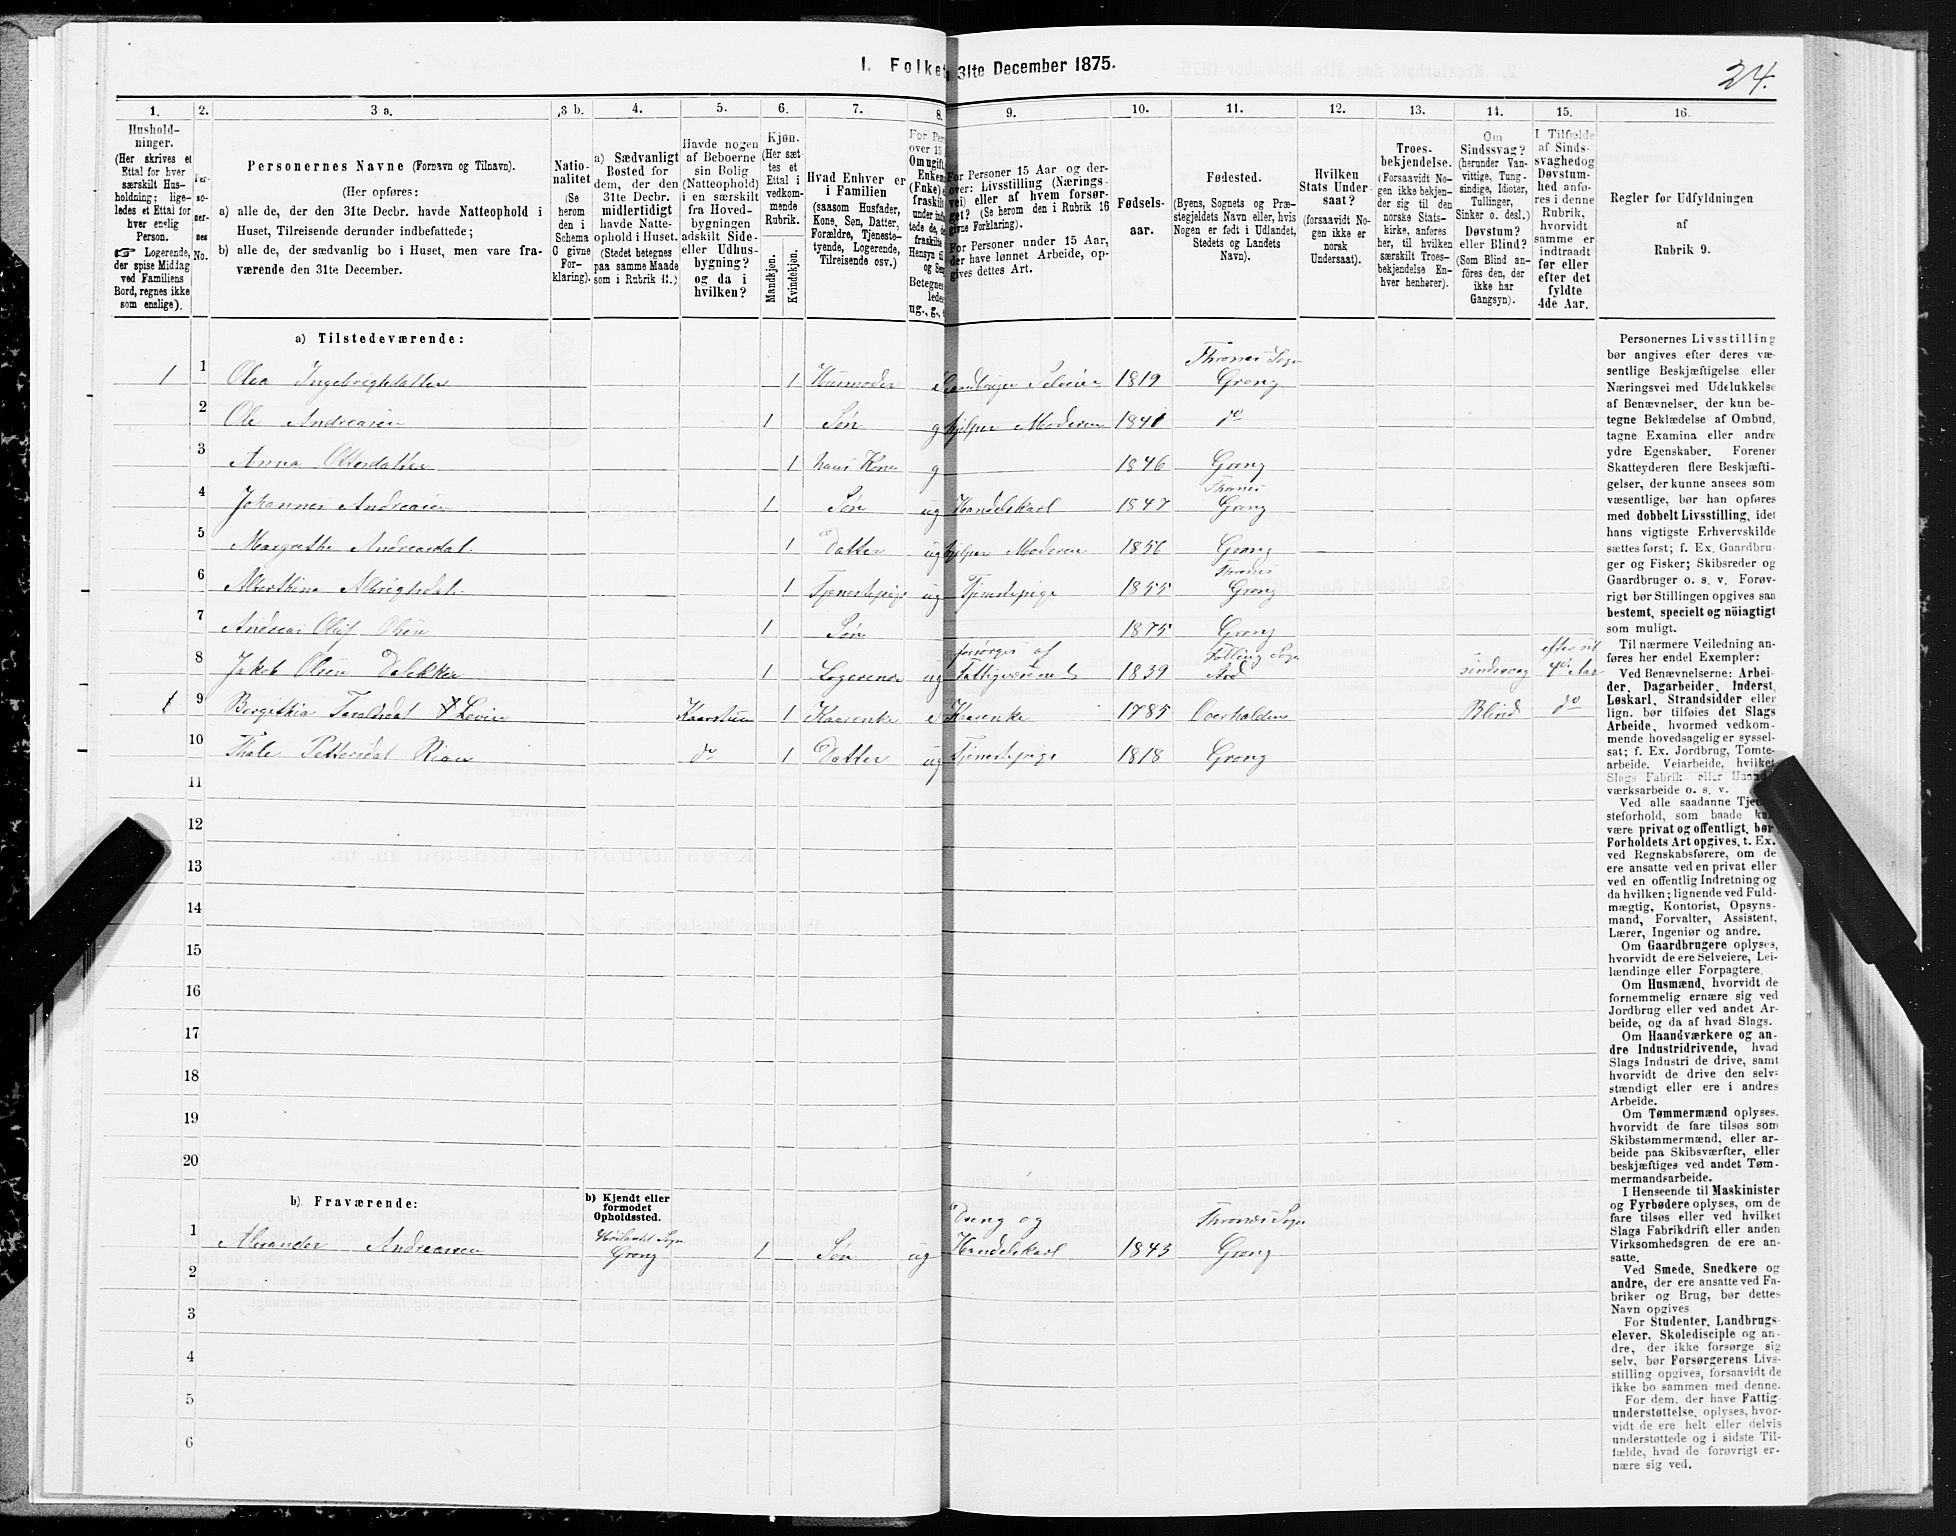 I. Folket 31te December 1875.
24.
1. 2. 3 a. 3 b. 4. 5. 6. 7. 8. 9. 10. 11. 12. 13. 14. 15. 16.
Hushold-
ninger.
(Her skrives et
Ettal for hver
særskilt Hus-
holdning; lige-
ledes et Ettal for
hver enslig
Person.
☞ Logerende,
der spise Middag
ved Familiens
Bord, regnes ikke
som enslige).
Per-
so-
ner-
nes
No.
Personernes Navne (Fornavn og Tilnavn).
(Her opføres:
a) alle de, der den 31te Decbr. havde Natteophold i
Huset, Tilreisende derunder indbefattede;
b) alle de, der sædvanlig bo i Huset, men vare fra-
værende den 31te December.
Natio-
nalitet
(Se
herom
den i
Schema
G givne
For-
klaring).
a) Sædvanligt
Bosted for
dem, der den
31te Decbr.
midlertidigt
havde Natte-
ophold i Huset.
(Stedet betegnes
paa samme Maade
som i Rubrik 11.)
Havde nogen
af Beboerne
sin Bolig
(Natteophold)
i en særskilt
fra Hoved-
bygningen
adskilt Side-
eller Udhus-
bygning?
og da i
hvilken?
Kjøn.
(Her sæt-
tes et
Ettal i
vedkom-
mende
Rubrik.
Mandkjøn.
Kvindekjøn.
Hvad Enhver er
i Familien
(saasom Husfader,
Kone, Søn, Datter,
Forældre, Tjeneste-
tyende, Logerende,
Tilreisende osv.)
For Per
over 15
Omugift
Enken
(Enke) e
fraskilt
under ind
tede de, de
fraskilte
Hensyn til
og Se
Betegnes
ledes
ug., g., e
For Personer 15 Aar og der-
over: Livsstilling (Nærings-
vei) eller af hvem forsør-
get? (Se herom den i Rubrik 16
givne Forklaring).
For Personer under 15 Aar,
der have lønnet Arbeide, op-
gives dettes Art.
Fødsels-
aar.
Fødested.
(Byens, Sognets og Præ-
stegjeldets Navn eller, hvis
Nogen er født i Udlandet,
Stedets og Landets
Navn).
Hvilken
Stats Under-
saat?
(forsaavidt No-
gen ikke er
norsk
Undersaat).
Troes-
bekjendelse.
(Forsaavidt No-
gen ikke bekjen-
der sig til den
norske Stats-
kirke, anføres
her, til hvilken
særskilt Troes-
bekjendelse En-
hver henhører).
Om
Sindssvag?
(herunder Van-
vittige, Tung-
sindige, Idioter,
Tullinger,
Sinker o. desl.)
Døvstum?
eller Blind?
(Som Blind an-
føres den, der
ikke har
Gangsyn).
I Tilfælde
af Sinds-
svaghedog
Døvstum-
hed anfø-
res i denne
Rubrik,
hvorvidt
samme er
indtraadt
før eller
efter det
fyldte
4de Aar.
Regler for Udfyldningen
af
Rubrik 9.
a) Tilstedeværende:
Thrones Sogn
1 1 Olea Ingebrigtsdatter 1 Husmoder e Gaardbruger Selveier 1819 Grong
2 Ole Andreasen 1 Søn g hjelper Moderen 1841 do
3 Anna Olsdatter 1 hans Kone g 1846 Grong
Thrones
4 Johannes Andreasen 1 Søn ug Handelskarl 1847 Grong
5 Margrethe Andreasdat. 1 Datter ug hjelper Moderen 1856 Grong
Thrones
6 Alberthina Albrigtsdat. 1 Tjenestepige ug Tjenestepige 1855 Grong
7 Andreas Oluf Olsen 1 Søn 1875 Grong
forsørges af Følling Sogn efter sit
8 Jakob Olsen 1 Logerende ug Fattigvesenet 1839 sindssvag 4de Aar
1 9 Bergithia 1 Kaarenke e Kaarenke 1785 Overhalden Blind do
10 Thale Pettersdat 1 Datter ug Tjenestepige 1818 Grong
11
12
13
14
15
16
17
18
19
20
b) Fraværende:
b) Kjendt eller
formodet
Opholdssted.
Høilandet Sogn Dreng og Thrones Sogn
1 Alexander Andreasen Grong 1 Søn ug Handelskarl 1843 Grong
2
3
4
5
6
Personernes Livsstilling
bør angives efter deres væ-
sentlige Beskjæftigelse eller
Næringsvei med Udelukkelse
af Benævnelser, der kun be-
tegne Beklædelse af Ombud,
tagne Examina eller andre
ydre Egenskaber. Forener
Skatteyderen flere Beskjæfti-
gelser, der kunne ansees som
væsentlige, bør han opføres
med dobbelt Livsstilling, idet
hans vigtigste Erhvervskilde
sættes først; f. Ex. Gaardbru-
ger og Fisker; Skibsreder og
Gaardbruger o. s. v. Forøv-
rigt bør Stillingen opgives saa
bestemt, specielt og nöiagtigt
som muligt.
Til nærmere Veiledning an-
føres her endel Exempler:
Ved Benævnelserne: Arbei-
der, Dagarbeider, Inderst,
Løskarl, Strandsidder eller
lign. bør tilføies det Slags
Arbeide, hvormed vedkom-
mende hovedsagelig er syssel-
sat; f. Ex. Jordbrug, Tomte-
arbeide, Veiarbeide, hvilket
Slags Fabrik- eller Haand-
værksarbeide o. s. v.
Ved alle saadanne Tjene-
steforhold, som baade kan
være privat og offentligt, bør
Forholdets Art opgives, t. Ex.
ved Regnskabsførere, om de
ere ansatte ved en privat eller
ved en offentlig Indretning og
da hvilken; lignende ved Fuld-
mægtig, Kontorist, Opsyns-
mand, Forvalter, Assistent,
Lærer, Ingeniør og andre.
Om Gaardbrugere oplyses,
hvorvidt de ere Selveiere, Lei-
lændinge eller Forpagtere.
Om Husmænd, hvorvidt de
fornemmelig ernære sig ved
Jordbrug eller ved andet Ar-
beide, og da af hvad Slags.
Om Haandværkere og an-
dre Industridrivende, hvad
Slags Industri de drive, samt
hvorvidt de drive den selv-
stændigt eller ere i andres
Arbeide.
Om Tømmermænd oplyses,
hvorvidt de fare tilsøs som
Skibstømmermænd, eller ar-
beide paa Skibsværfter, eller
beskjæftiges ved andet Tøm-
mermandsarbeide.
I Henseende til Maskinister
og Fyrbødere oplyses, om de
fare tilsøs eller ved hvilket
Slags Fabrikdrift eller anden
Virksomhedsgren de ere an-
satte.
Ved Smede, Snedkere og
andre, der ere ansatte ved Fa-
briker og Brug, bør dettes
Navn opgives.
For Studenter, Landbrugs-
elever, Skoledisciple og an-
dre, der ikke forsørge sig
selv, bør Forsørgerens Livs-
stilling opgives, forsaavidt de
ikke bo sammen med denne.
For dem, der have Fattig-
understøttelse, oplyses, hvor-
vidt de ere helt eller delvis
understøttede og i sidste Til-
fælde, hvad de forøvrigt er-
nære sig ved.